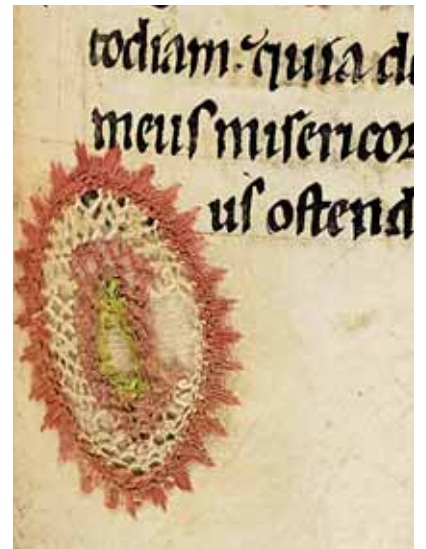 todiam. quia de
meuſ miſericor
uſ oſtend